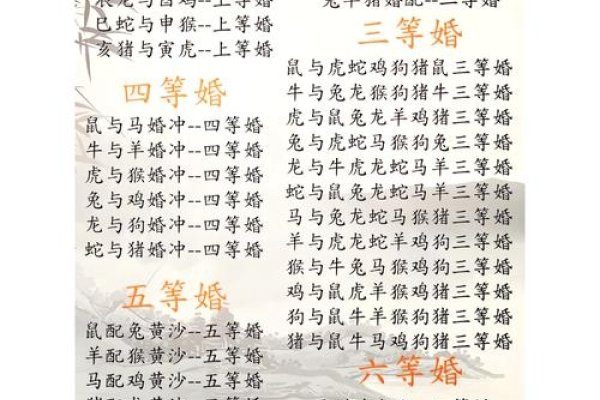 巳蛇与申猴--上等婚
亥猪与寅虎--上等婚
四等婚
鼠与马婚冲--四等婚
牛与羊婚冲--四等婚
虎与猴婚冲--四等婚
兔与鸡婚冲--四等婚
龙与狗婚冲--四等婚
蛇与猪婚冲--四等婚
五等婚
鼠配兔黄沙--五等婚
羊配猴黄沙--五等婚
马配鸡黄沙--五等婚
三等婚
鼠与虎蛇鸡狗猪鼠三等婚
牛与兔龙猴狗猪牛三等婚
虎与鼠兔龙羊鸡猪三等婚
兔与虎蛇马猴狗兔三等婚
龙与牛虎龙蛇马羊三等婚
蛇与鼠兔龙蛇羊鸡三等婚
马与兔龙蛇马猴猪三等婚
羊与虎龙蛇羊鸡狗三等婚
猴与牛兔马猴鸡狗三等婚
鸡与鼠虎羊猴鸡猪三等婚
狗与鼠牛羊猴狗猪三等婚
猪与鼠牛马鸡狗猴三等婚
六等婚